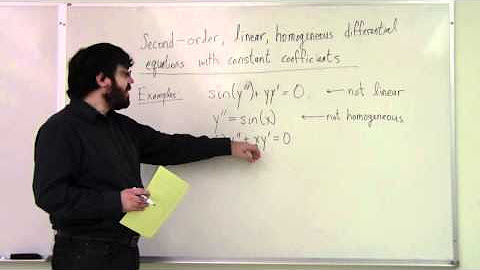 Second-order, linear, homogeneous differential
equations with constant coefficients
Examples sin(y''')+yy'=0. ← not linear
y''=sin(x) ← not homogeneous
y''+xy'=0